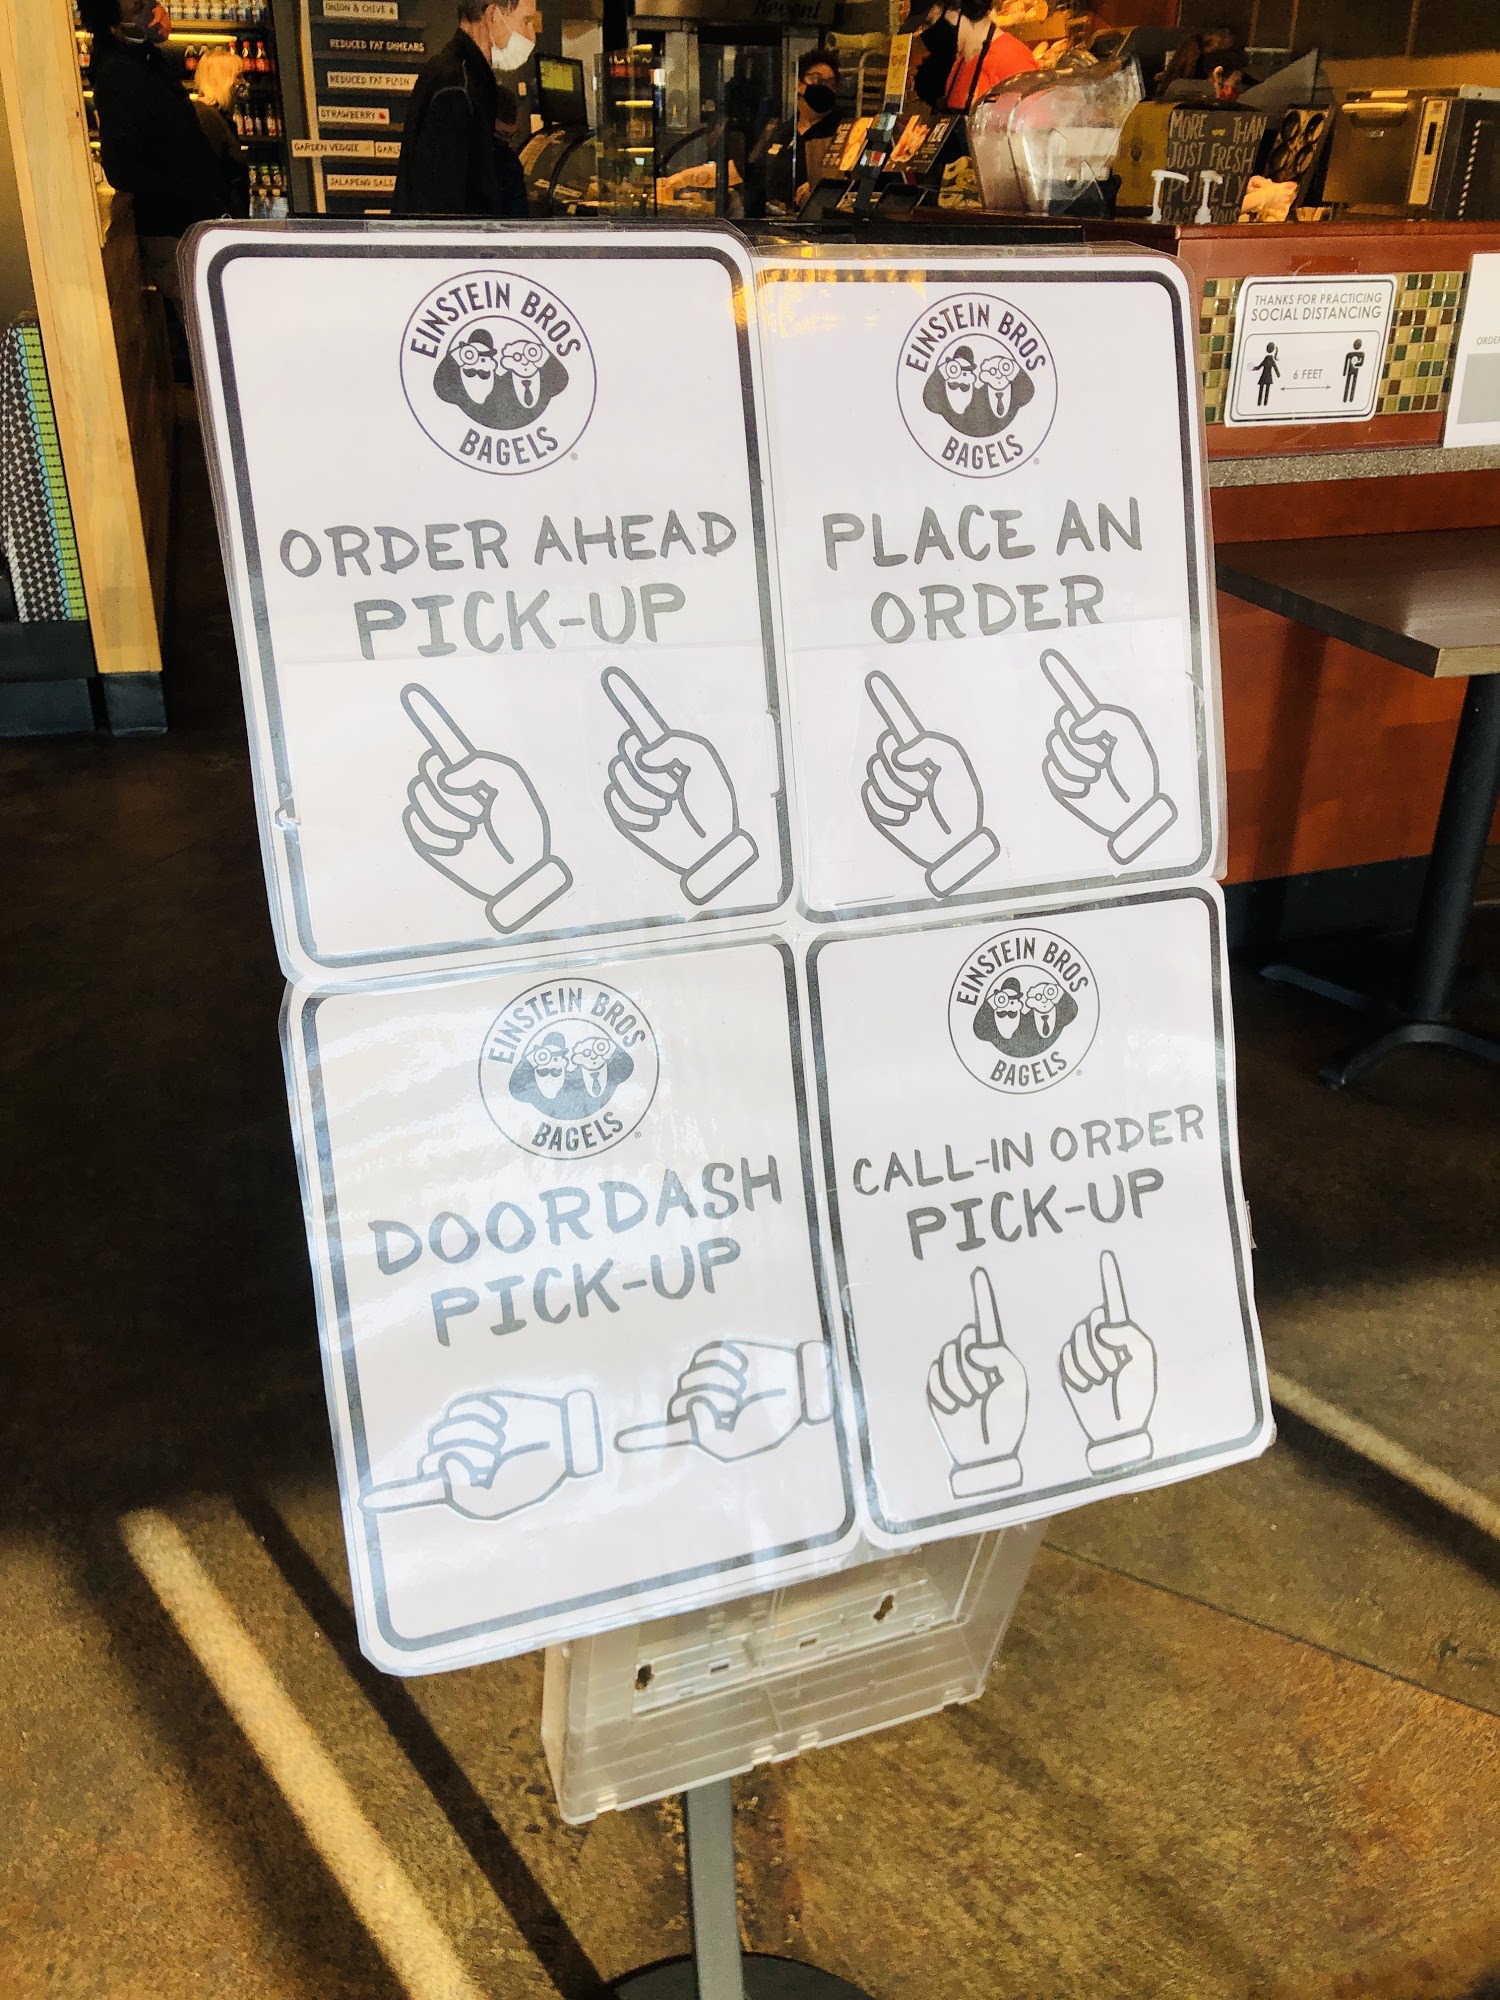 ONION & CHIVE
REDUCED FAT SHMEARS
REDUCED FAT PLAIN
STRAWBERRY
GARDEN VEGGIE
MORE THAN
JUST FRESH
THANKS FOR PRACTICING
SOCIAL DISTANCING
6 FEET
EINSTEIN BROS
BAGELS®
ORDER AHEAD
PICK-UP
EINSTEIN BROS
BAGELS®
PLACE AN
ORDER
EINSTEIN BROS
BAGELS®
DOORDASH
PICK-UP
EINSTEIN BROS
BAGELS®
CALL-IN ORDER
PICK-UP